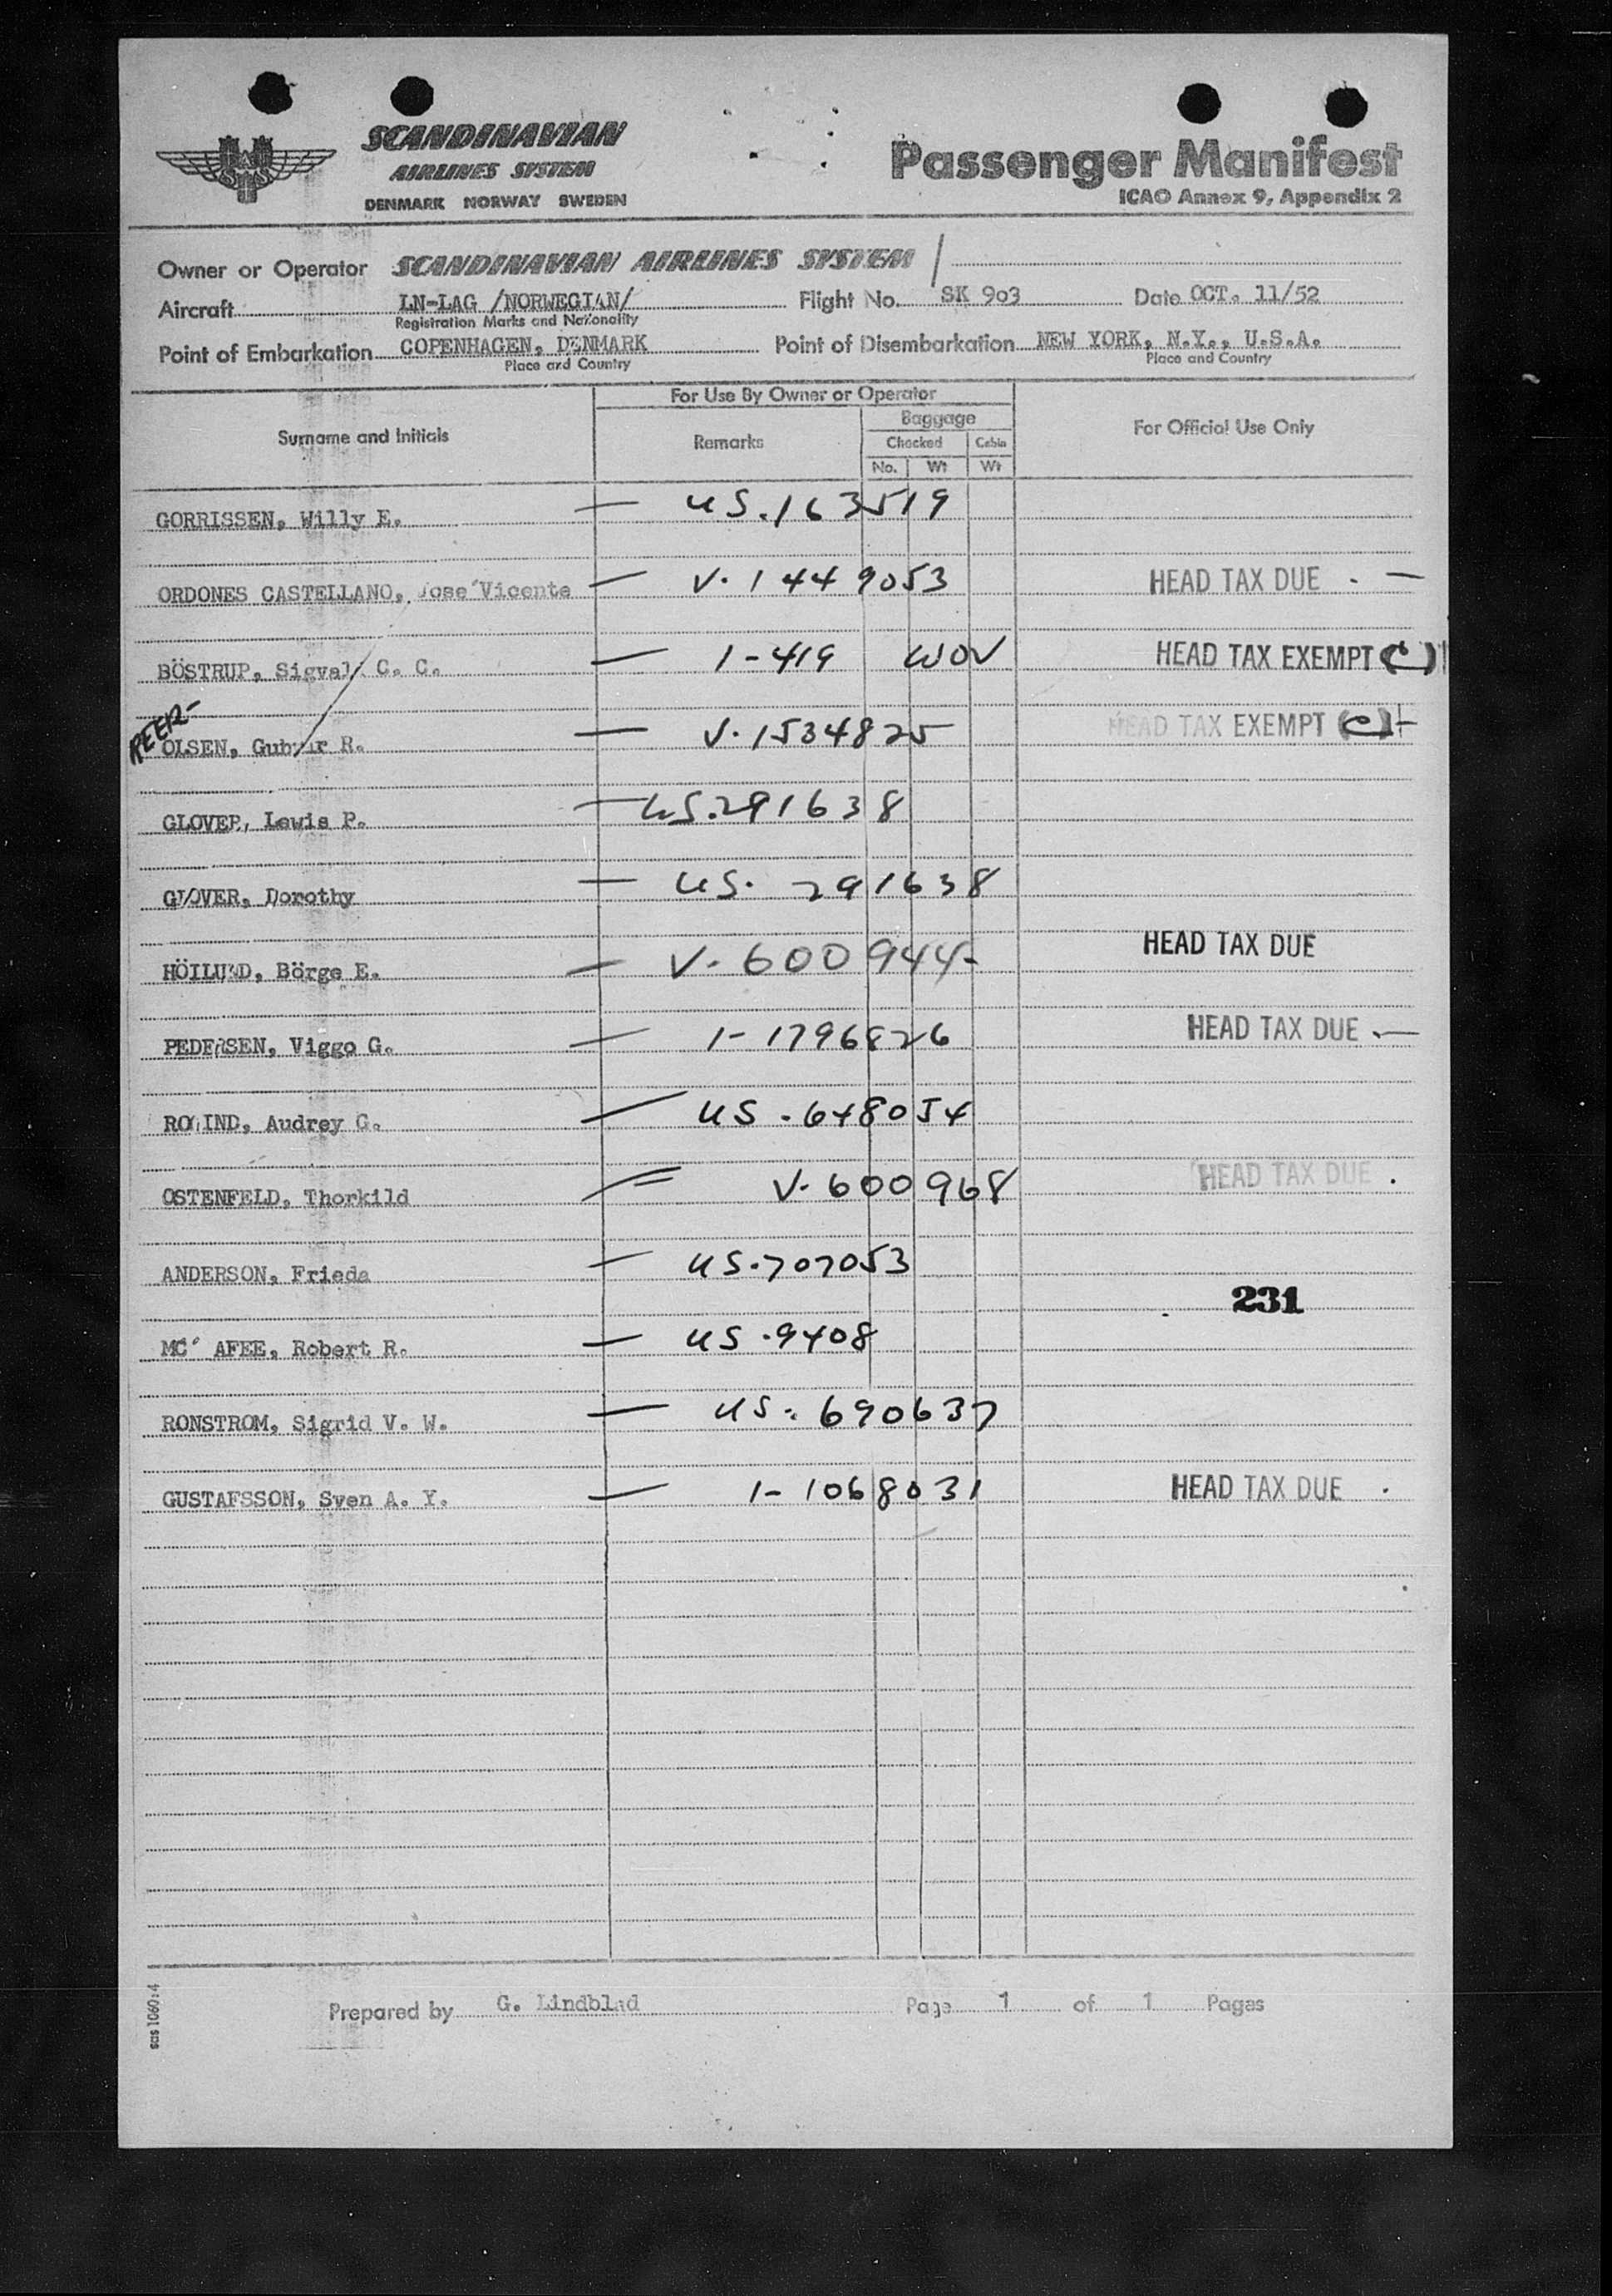 SCANDINAVIAN
AIRLINES SYSTEM
DENMARK NORWAY SWEDEN
Passenger Manifest
ICAO Annex 9, Appendix 2
Owner or Operator SCANDINAVIAN AIRLINES SYSTEM
Aircraft LN-LAG /NORWEGIAN/ Flight No. SK 903 Date OCT. 11/52
Registration Marks and Nationality
Point of Embarkation COPENHAGEN, DENMARK Point of Disembarkation NEW YORK, N.Y., U.S.A.
Place and Country Place and Country
For Use By Owner or Operator
Surname and Initials Remarks Baggage For Official Use Only
Checked Cabin
No. Wt Wt
GORRISSEN, Willy E. — US.163519
ORDONES CASTELLANO, Jose Vicente — V.1449053 HEAD TAX DUE . —
BÖSTRUP, Sigvald C. C. — 1-419 WOV HEAD TAX EXEMPT (C)
PEER-
OLSEN, R. — V.1534825 HEAD TAX EXEMPT (C)
GLOVER, Lewis P. — US.291638
GLOVER, Dorothy — US. 291638
HÖILUND, Börge E. — V-600944 HEAD TAX DUE
PEDERSEN, Viggo G. — 1-1796826 HEAD TAX DUE . —
Audrey G. — US.648054
OSTENFELD, Thorkild V.600968 HEAD TAX DUE .
ANDERSON, Frieda — US.707053
231
MC' AFEE, Robert R. — US.9408
RONSTROM, Sigrid V. W. — US. 690637
GUSTAFSSON, Sven A. Y. — 1-1068031 HEAD TAX DUE .
sas 1060:4
Prepared by G. Lindblad Page 1 of 1 Pages